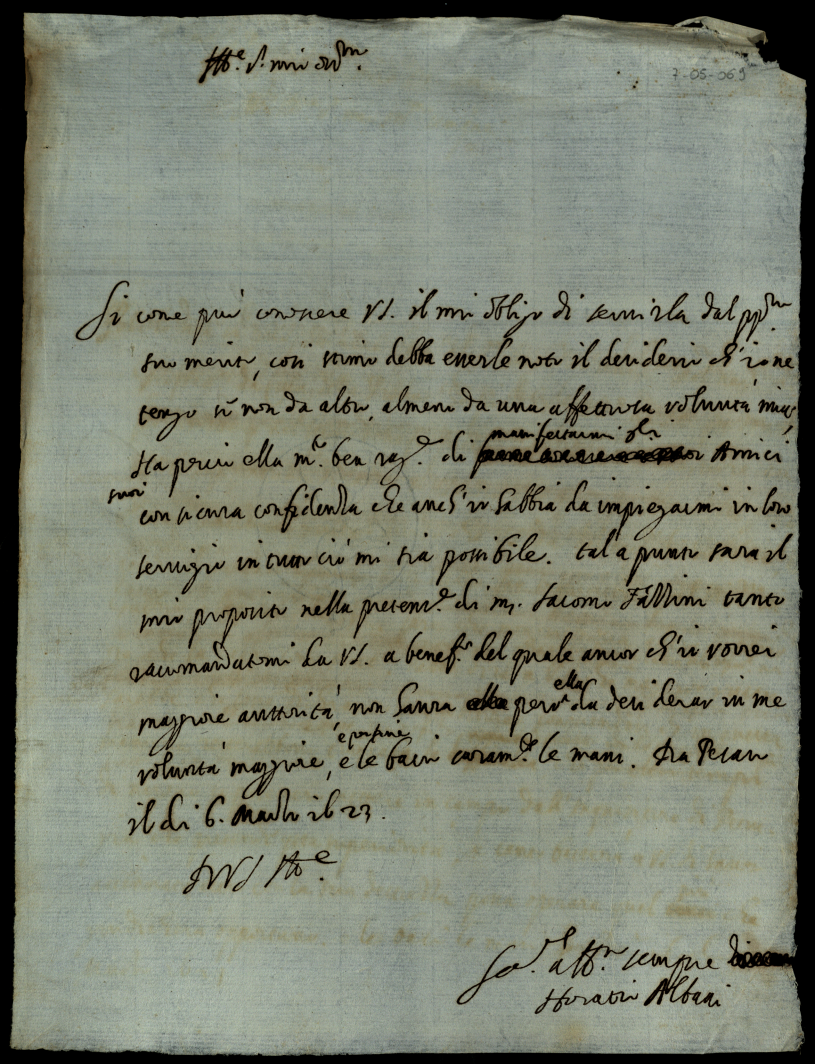 Ill.re S.r mio oss.mo
7-05-069
Si come può conoscere VS. il mio obligo di servirla dal pp.rio
suo merito, così stimo debba esserle noto il desiderio ch'io ne
tengo se non da altro, almeno da una affettuosa volontà mia,
manifestarmi gli
Ha perciò ella m.to ben rag.e di Amici
suoi
con sicura confidenza che anch'io habbia da impiegarmi in loro
servigio in tutto ciò mi sia possibile. tal a punto sarà il
mio proposito nella pretens.e di m. Jacomo Fattini tanto
racomandatomi da VS. a benef.o del quale ancor ch'io vorrei
ella
maggiore auttorità, non havrà ella però da desiderar in me
e per fine
volontà maggiore, e le bacio caram.te le mani. Da Pesaro
il dì 6. Marzo il 23.
D VS Ill.re
Ser.re aff.mo sempre
Horatio Albani